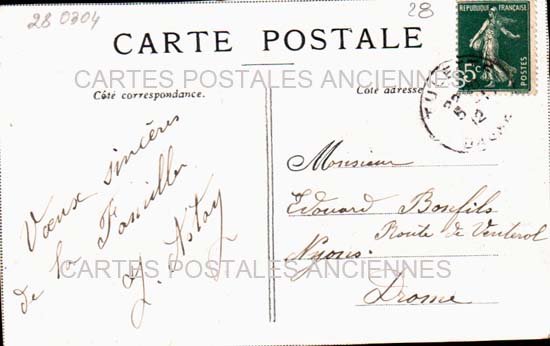 28 0304
28
REPUBLIQUE FRANÇAISE
5c
POSTES
CARTE POSTALE
CARTES POSTALES ANCIENNES
Côté correspondance.
Côté adresse
Voeux sincères
de la Famille
Astay
Monsieur
Edouard Bonfils
Route de Venterol
Nyons.
Drome
CARTES POSTALES ANCIENNES